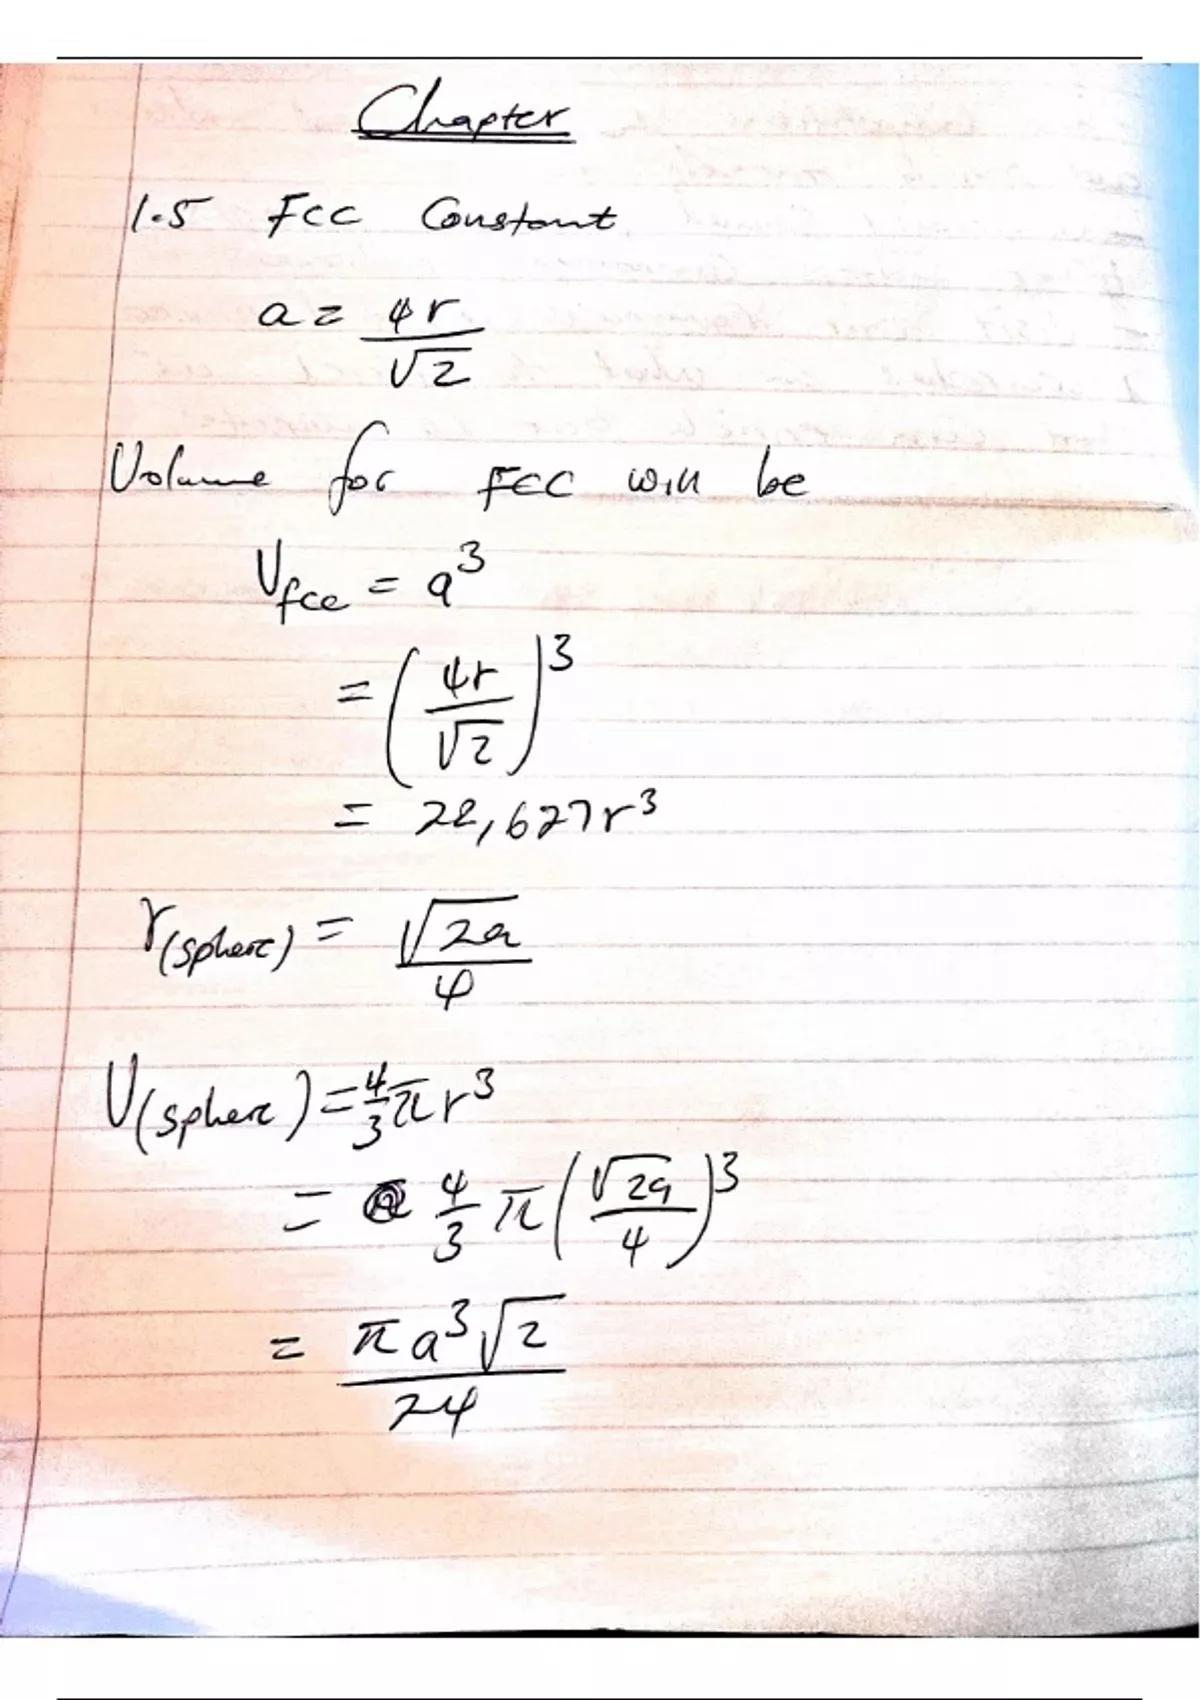 Chapter
1.5 FCC Constant
a = 4r/√2
Volume for FCC will be
Vfcc = a³
= (4r/√2)³
= 22,627r³
r(sphere) = √2a/4
V(sphere) = 4/3 π r³
= 4/3 π (√2a/4)³
= πa³√2/24